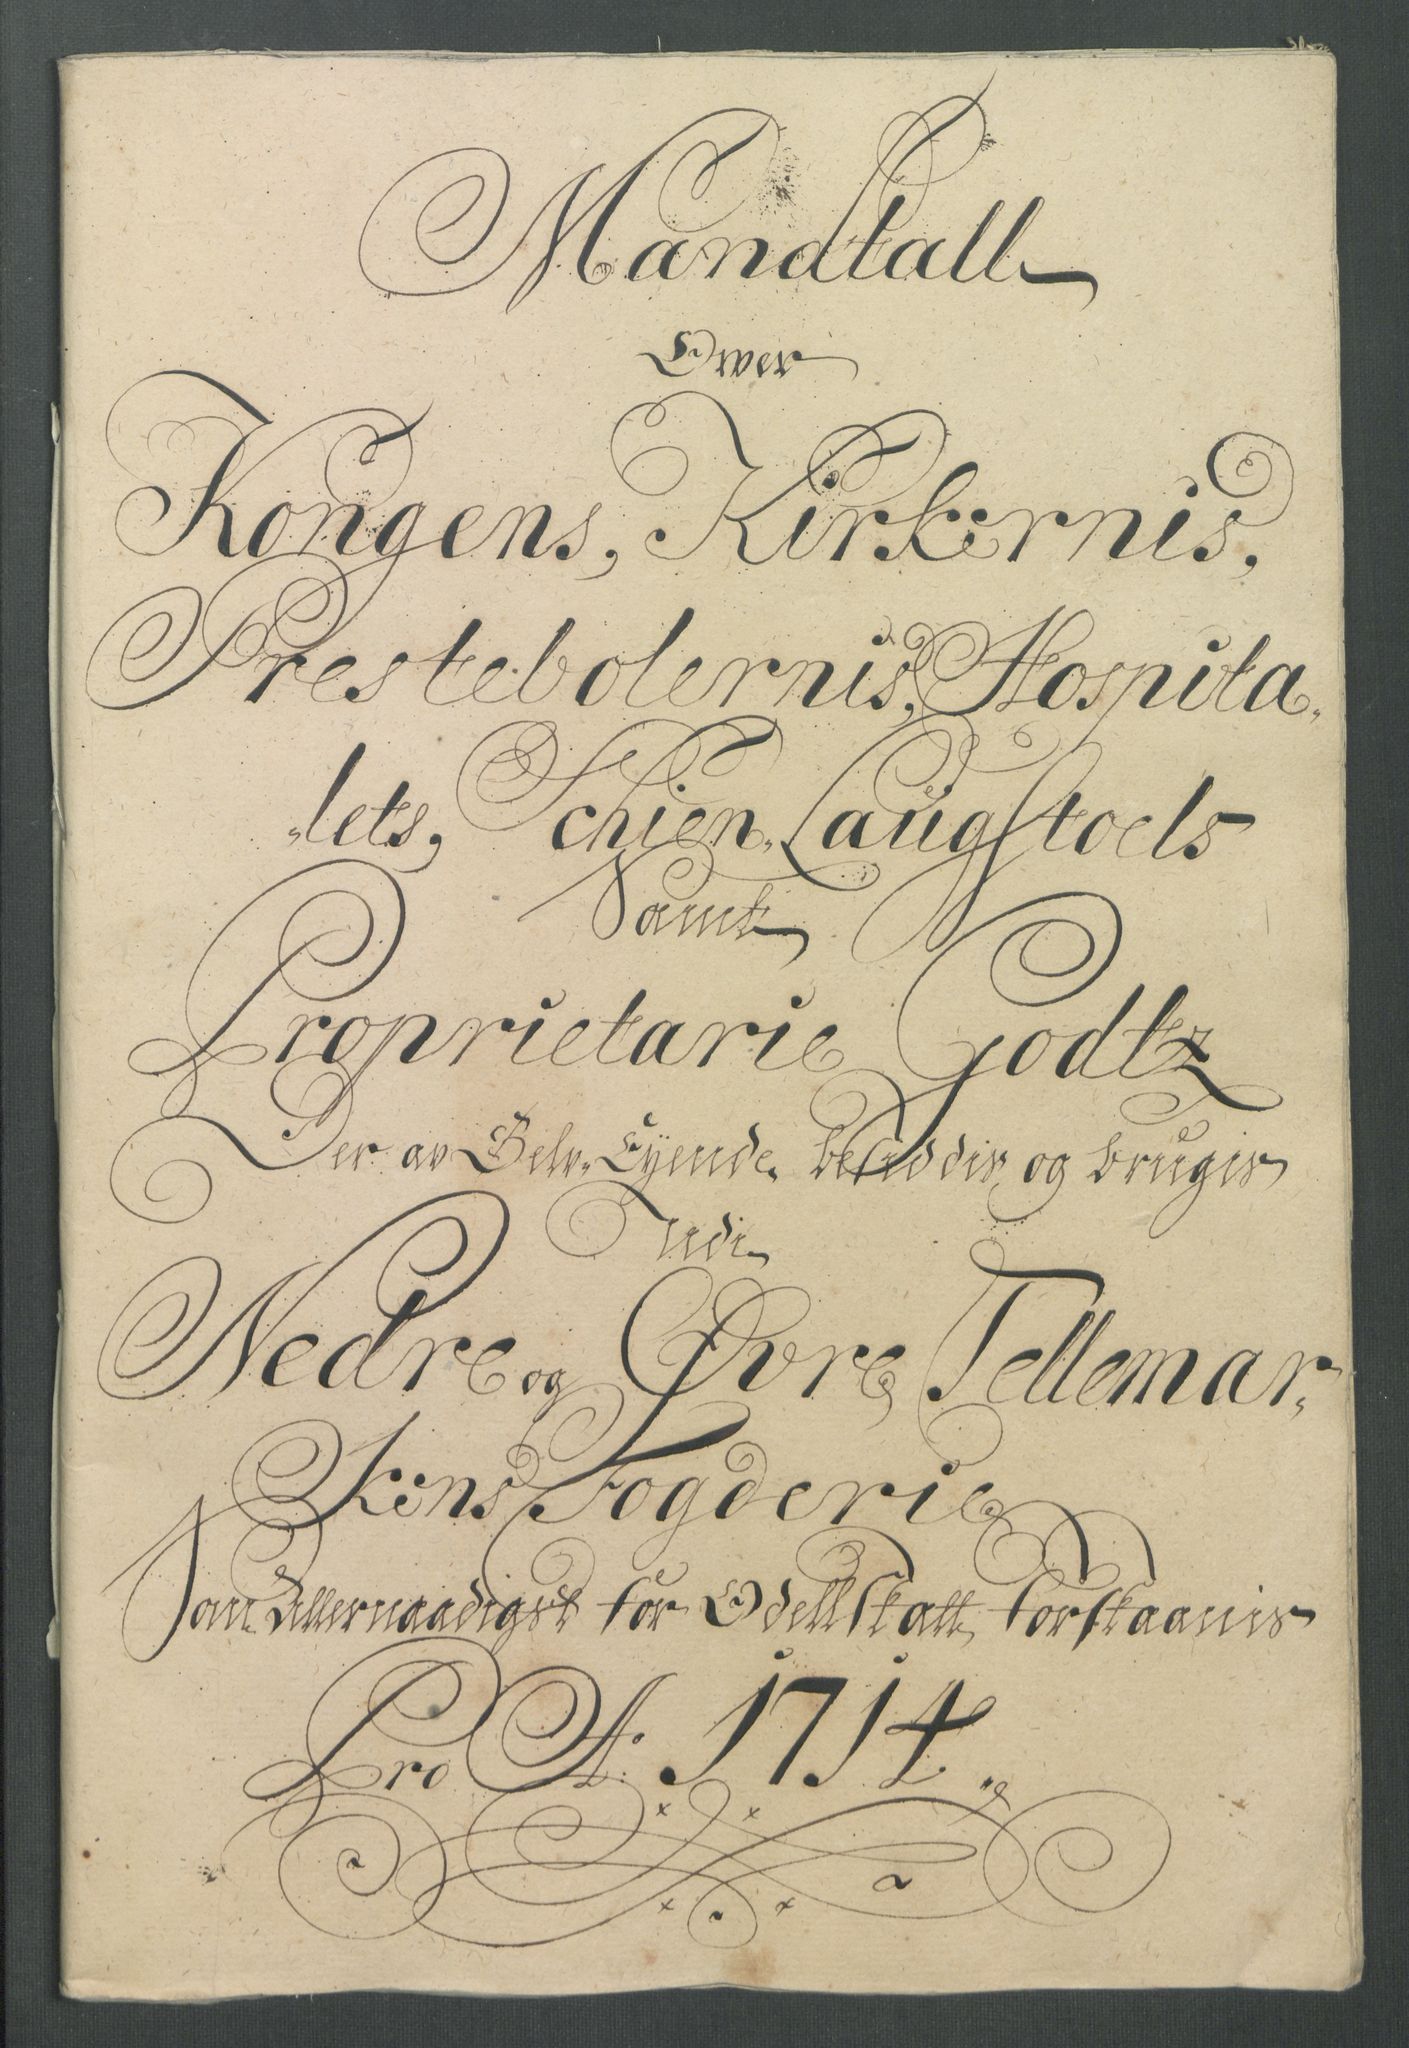 Mandtall
Over
Kongens, Kirkernis,
Prestebolernis, Hospita-
-lets, Schien, Laugstoels
Samt
Proprietarie Godtz
Der av Selv-Eyende besiddis og brugis
Udi
Nedre og Øvre Tellemar-
kens Fogderie
Som Allernaadigst for Odellskatt forskaanis
Pro A: 1714